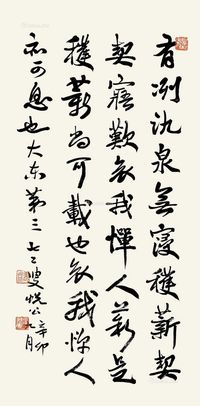 有冽氿泉無寖穫薪契
契寤歎哀我憚人薪是
穫薪尚可載也哀我憚人
亦可息也大东第三七二叟悅公辛卯九月